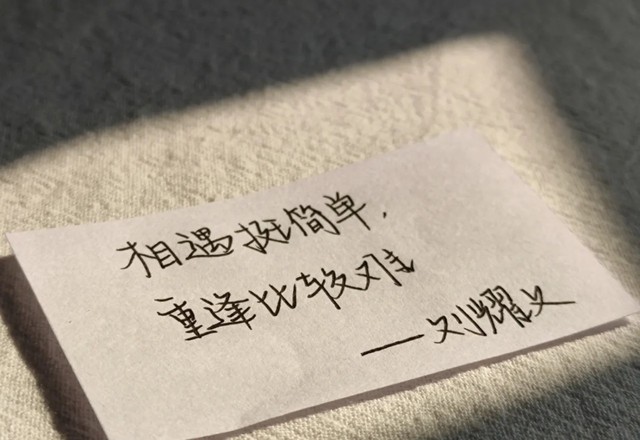 相遇挺简单，
重逢比较难
——刘耀文